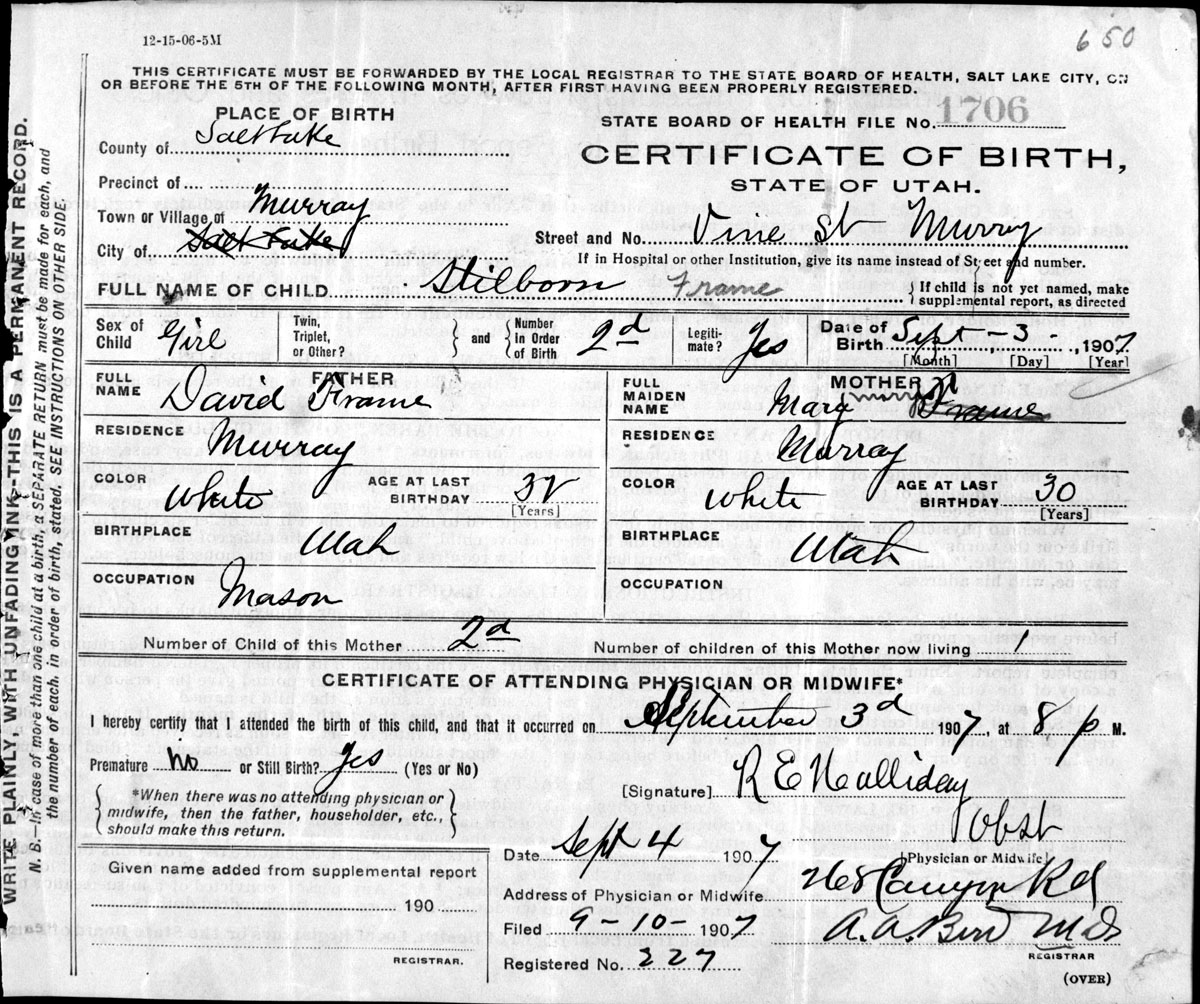 12-15-06-5M
650
THIS CERTIFICATE MUST BE FORWARDED BY THE LOCAL REGISTRAR TO THE STATE BOARD OF HEALTH, SALT LAKE CITY, ON
OR BEFORE THE 5TH OF THE FOLLOWING MONTH, AFTER FIRST HAVING BEEN PROPERLY REGISTERED.
PLACE OF BIRTH
County of Salt Lake
Precinct of
Town or Village of Murray
City of Salt Lake
STATE BOARD OF HEALTH FILE NO. 1706
CERTIFICATE OF BIRTH,
STATE OF UTAH.
Street and No. Vine St Murray
If in Hospital or other Institution, give its name instead of Street and number.
FULL NAME OF CHILD Stilborn Frame { If child is not yet named, make
supplemental report, as directed
Sex of Child Girl Twin, Triplet, or Other? } and { Number in Order of Birth 2d Legiti-mate? Yes Date of Birth Sept - 3 - , 1907
[Month] [Day] [Year]
FATHER
FULL NAME David Frame
RESIDENCE Murray
COLOR White AGE AT LAST BIRTHDAY 32
[Years]
BIRTHPLACE Utah
OCCUPATION Mason
MOTHER
FULL MAIDEN NAME Mary Frame
RESIDENCE Murray
COLOR White AGE AT LAST BIRTHDAY 30
[Years]
BIRTHPLACE Utah
OCCUPATION
Number of Child of this Mother 2d Number of children of this Mother now living 1
CERTIFICATE OF ATTENDING PHYSICIAN OR MIDWIFE*
I hereby certify that I attended the birth of this child, and that it occurred on September 3d 1907, at 8 p M.
Premature No or Still Birth? Yes (Yes or No)
{ *When there was no attending physician or
midwife, then the father, householder, etc.,
should make this return. }
[Signature] R E Halliday
Obst
[Physician or Midwife]
Date Sept 4 1907
Address of Physician or Midwife Canyon Rd
Filed 9-10-1907 A. A. Bird M D
REGISTRAR
Registered No. 227
(OVER)
Given name added from supplemental report
190
REGISTRAR.
WRITE PLAINLY WITH UNFADING INK—THIS IS A PERMANENT RECORD.
N. B.—In case of more than one child at a birth, a SEPARATE RETURN must be made for each, and
the number of each, in order of birth, stated. SEE INSTRUCTIONS ON OTHER SIDE.